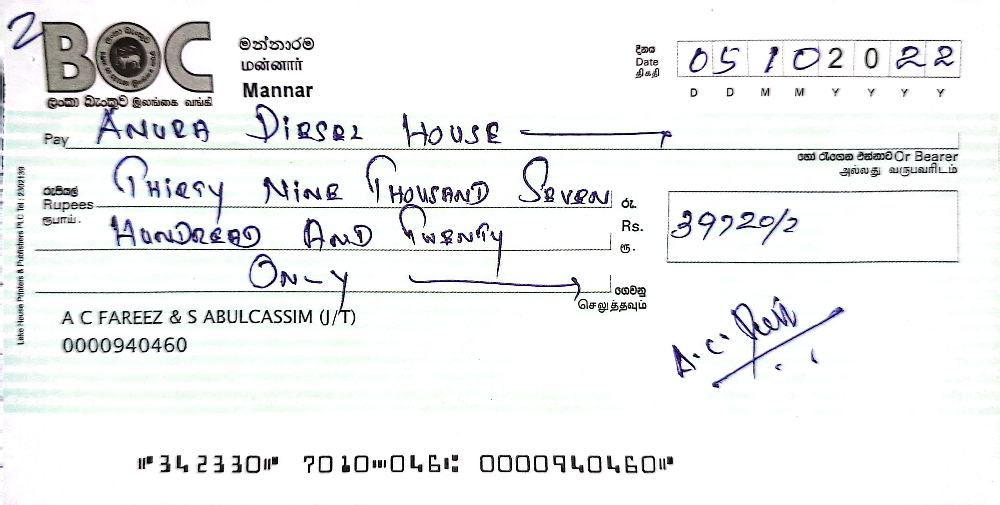 2
BOC
ලංකා බැංකුව இலங்கை வங்கி
මන්නාරම
மன்னார்
Mannar
දිනය
Date
திகதி
05 10 2022
D D M M Y Y Y Y
Pay ANURA DIESEL HOUSE
හෝ රැගෙන එන්නාට Or Bearer
அல்லது வருபவரிடம்
රුපියල්
Rupees
ரூபாய்.
THIRTY NINE THOUSAND SEVEN
HUNDREAD AND TWENTY
ONLY
රු.
Rs.
ரூ.
39720/2
ගෙවනු
செலுத்தவும்
A C FAREEZ & S ABULCASSIM (J/T)
0000940460
A.C.
Lake House Printers & Publishers PLC Tel : 2302139
342330 7010 046 0000940460